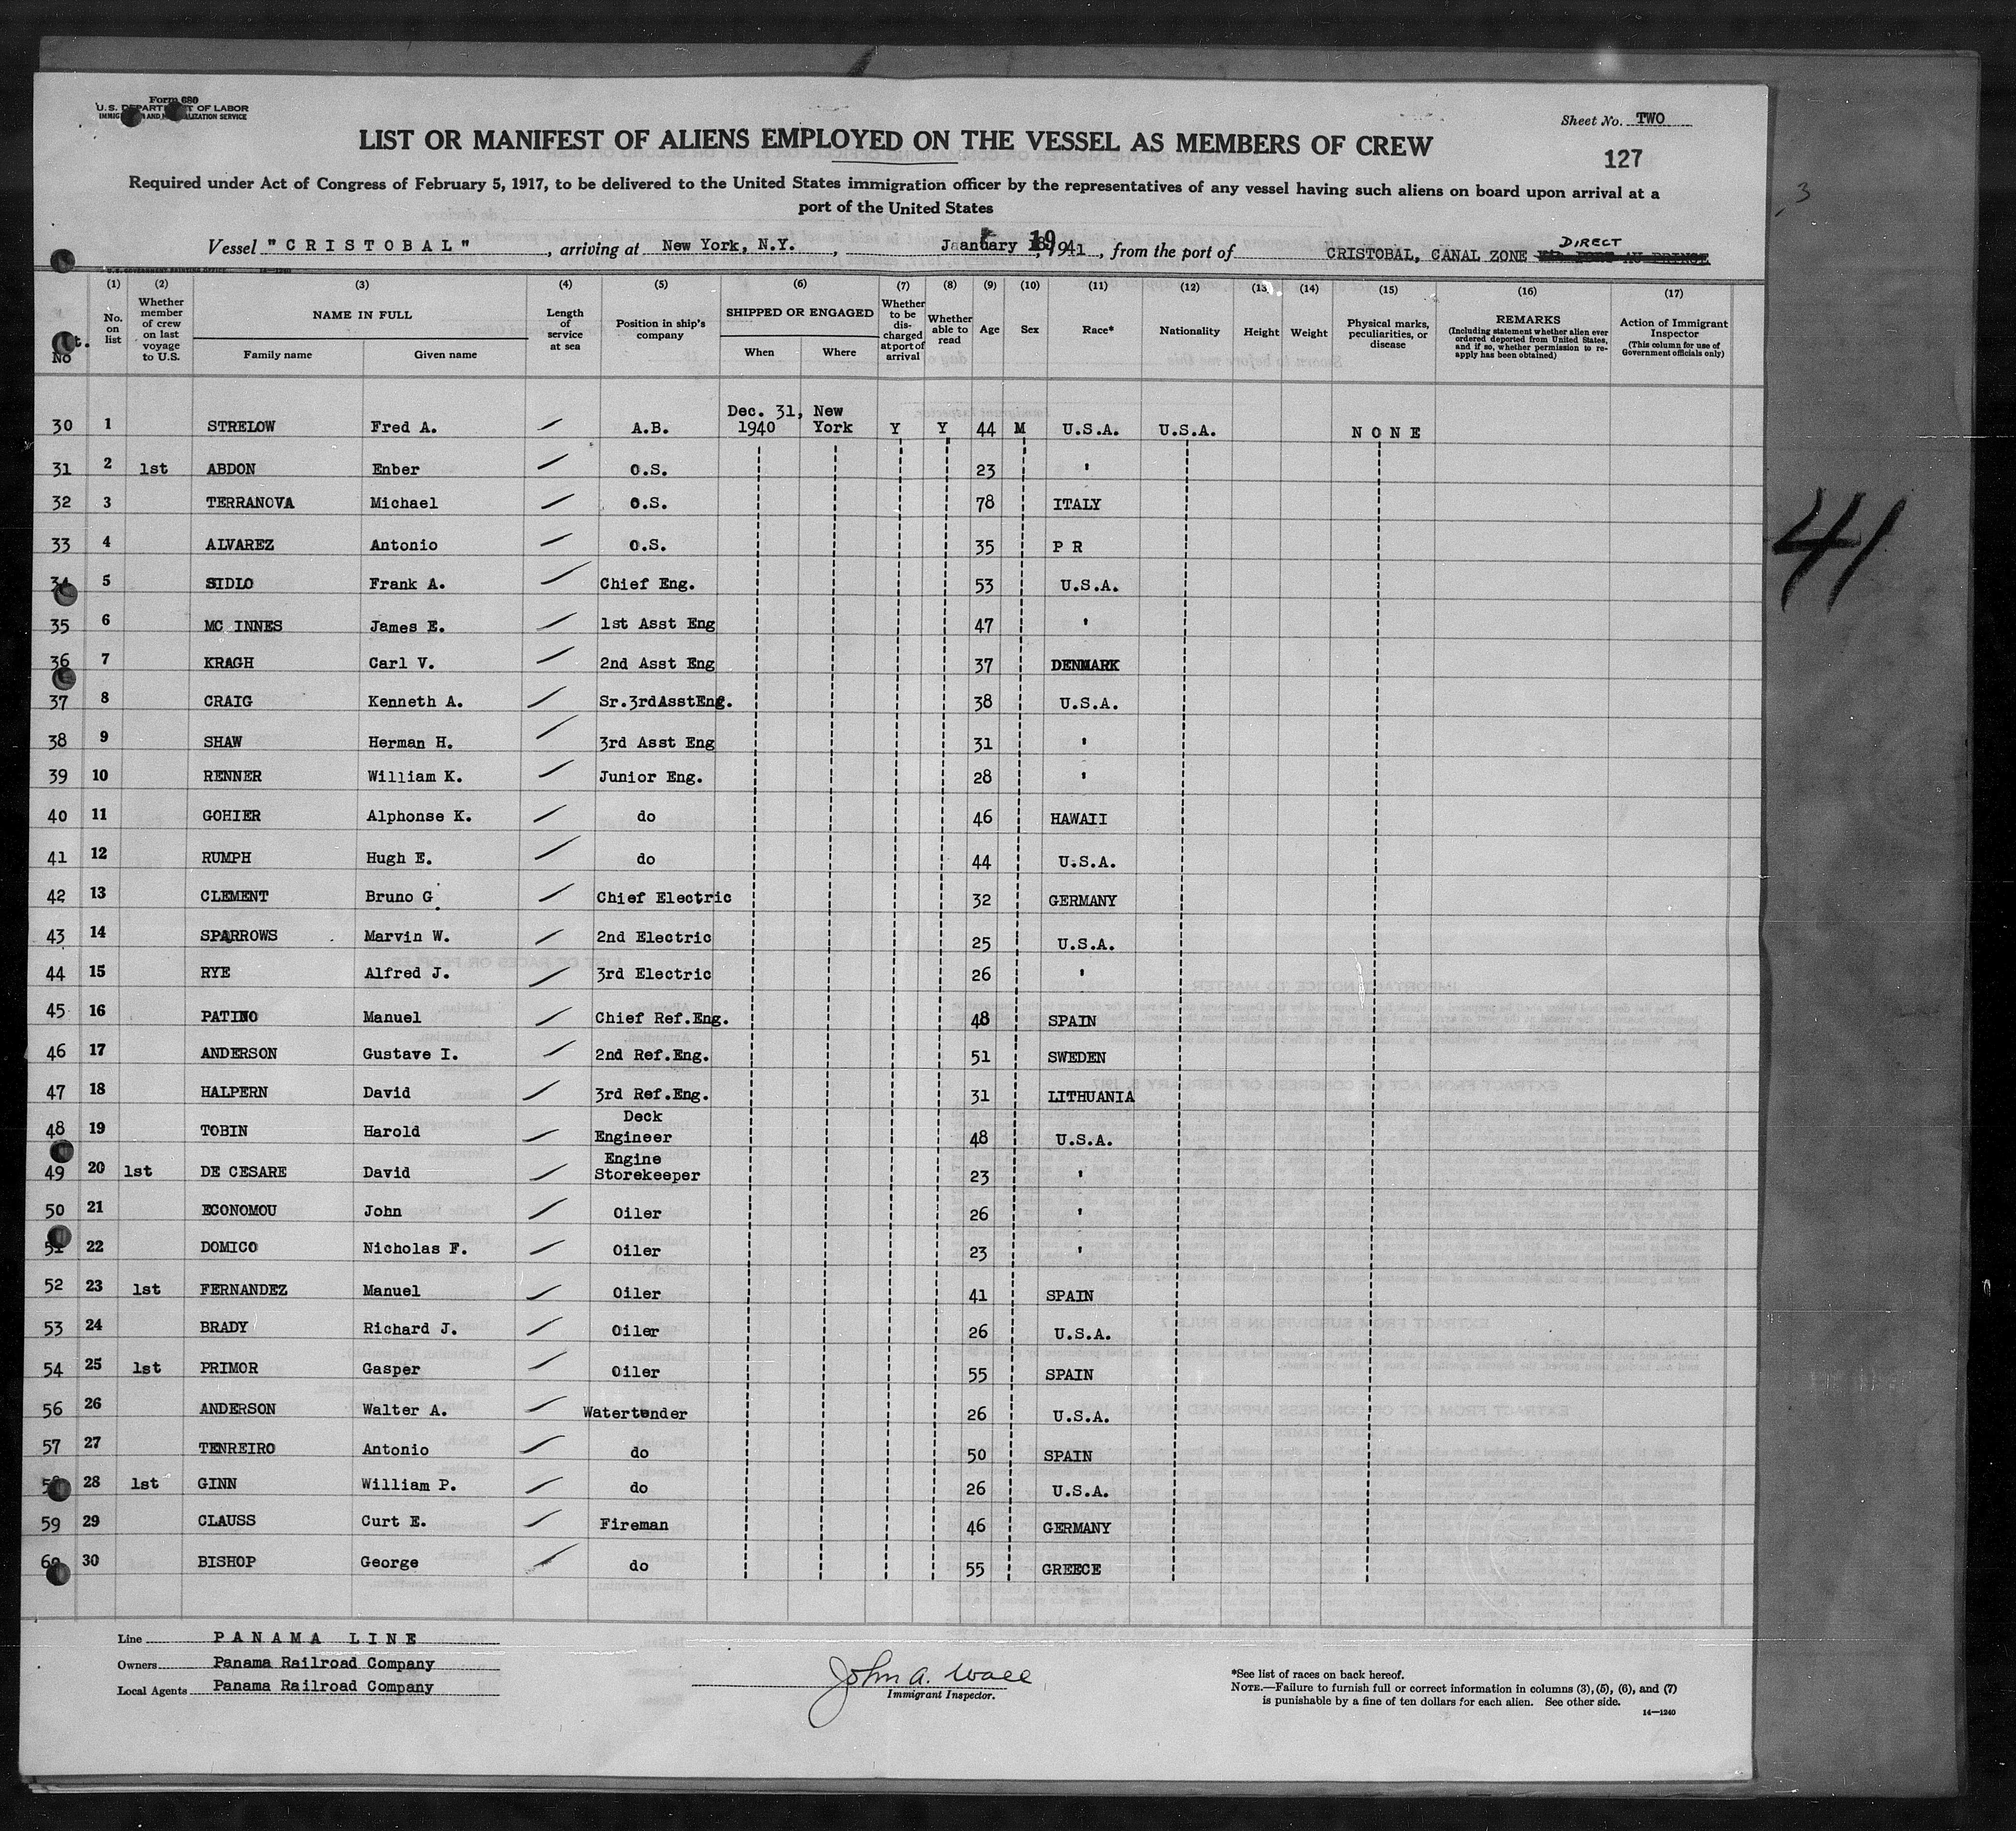 Form 680
U.S. DEPARTMENT OF LABOR
IMMIGRATION AND NATURALIZATION SERVICE
Sheet No. TWO
LIST OR MANIFEST OF ALIENS EMPLOYED ON THE VESSEL AS MEMBERS OF CREW
127
Required under Act of Congress of February 5, 1917, to be delivered to the United States immigration officer by the representatives of any vessel having such aliens on board upon arrival at a
port of the United States
3
Vessel "CRISTOBAL", arriving at New York, N.Y., January 19, 1941, from the port of CRISTOBAL, CANAL ZONE DIRECT
U.S. GOVERNMENT PRINTING OFFICE 14-1240
(1) (2) (3) (4) (5) (6) (7) (8) (9) (10) (11) (12) (13) (14) (15) (16) (17)
No
No. on list
Whether member of crew on last voyage to U.S.
NAME IN FULL
Family name Given name
Length of service at sea
Position in ship's company
SHIPPED OR ENGAGED
When Where
Whether to be discharged at port of arrival
Whether able to read
Age
Sex
Race*
Nationality
Height
Weight
Physical marks, peculiarities, or disease
REMARKS
(Including statement whether alien ever ordered deported from United States, and if so, whether permission to reapply has been obtained)
Action of Immigrant Inspector
(This column for use of Government officials only)
30 1 STRELOW Fred A. A.B. Dec. 31, 1940 New York Y Y 44 M U.S.A. U.S.A. NONE
31 2 1st ABDON Enber O.S. 23 "
32 3 TERRANOVA Michael O.S. 78 ITALY
33 4 ALVAREZ Antonio O.S. 35 P R
34 5 SIDLO Frank A. Chief Eng. 53 U.S.A.
35 6 MC INNES James E. 1st Asst Eng 47 "
36 7 KRAGH Carl V. 2nd Asst Eng 37 DENMARK
37 8 CRAIG Kenneth A. Sr.3rdAsstEng. 38 U.S.A.
38 9 SHAW Herman H. 3rd Asst Eng 31 "
39 10 RENNER William K. Junior Eng. 28 "
40 11 GOHIER Alphonse K. do 46 HAWAII
41 12 RUMPH Hugh E. do 44 U.S.A.
42 13 CLEMENT Bruno G. Chief Electric 32 GERMANY
43 14 SPARROWS Marvin W. 2nd Electric 25 U.S.A.
44 15 RYE Alfred J. 3rd Electric 26 "
45 16 PATINO Manuel Chief Ref.Eng. 48 SPAIN
46 17 ANDERSON Gustave I. 2nd Ref.Eng. 51 SWEDEN
47 18 HALPERN David 3rd Ref.Eng. 31 LITHUANIA
48 19 TOBIN Harold Deck Engineer 48 U.S.A.
49 20 1st DE CESARE David Engine Storekeeper 23 "
50 21 ECONOMOU John Oiler 26 "
51 22 DOMICO Nicholas F. Oiler 23 "
52 23 1st FERNANDEZ Manuel Oiler 41 SPAIN
53 24 BRADY Richard J. Oiler 26 U.S.A.
54 25 1st PRIMOR Gasper Oiler 55 SPAIN
56 26 ANDERSON Walter A. Watertender 26 U.S.A.
57 27 TENREIRO Antonio do 50 SPAIN
58 28 1st GINN William P. do 26 U.S.A.
59 29 CLAUSS Curt E. Fireman 46 GERMANY
60 30 BISHOP George do 55 GREECE
41
Line PANAMA LINE
Owners Panama Railroad Company
Local Agents Panama Railroad Company
John A. Wall
Immigrant Inspector.
*See list of races on back hereof.
NOTE.—Failure to furnish full or correct information in columns (3), (5), (6), and (7)
is punishable by a fine of ten dollars for each alien. See other side.
14-1240